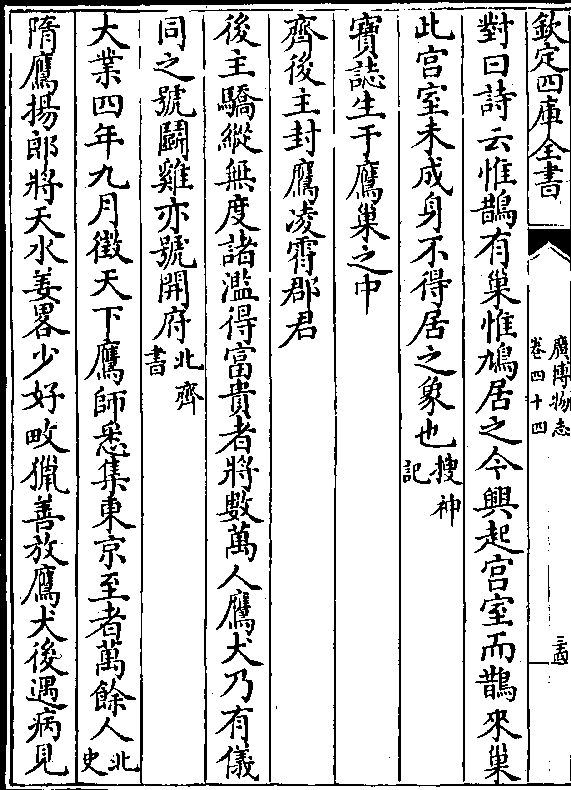 欽定四庫全書
廣博物志
卷四十四
三四
對曰詩云惟鵲有巢惟鳩居之今興起宫室而鵲來巢
此宫室未成身不得居之象也搜神記
寶誌生于鷹巢之中
齊後主封鷹凌霄郡君
後主驕縱無度諸濫得富貴者將數萬人鷹犬乃有儀
同之號鬭雞亦號開府北齊書
大業四年九月徵天下鷹師悉集東京至者萬餘人北史
隋鷹揚郎將天水姜畧少好畋獵善放鷹犬後遇病見